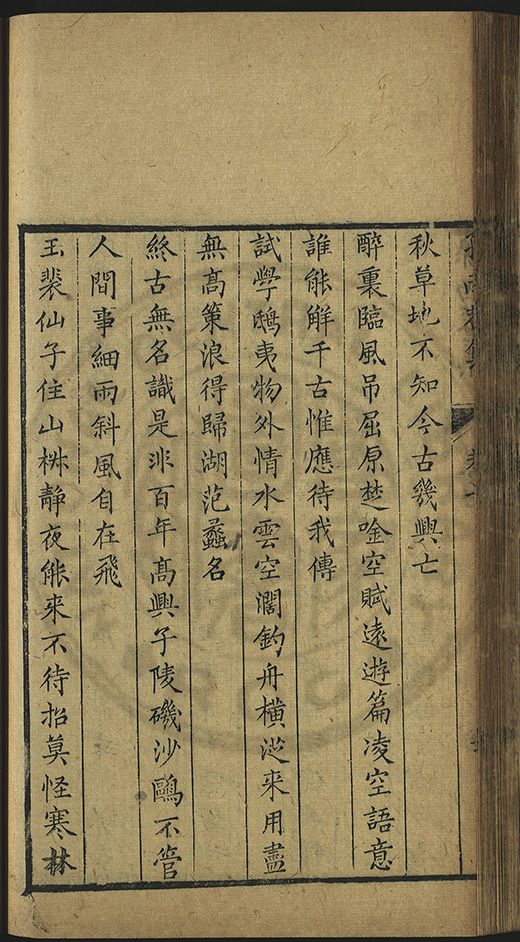 秋草地不知今古幾興亡
醉裏臨風吊屈原楚唫空賦遠遊篇凌空語意
誰能解千古惟應待我傳
試學鴟夷物外情水雲空濶釣舟橫從来用盡
無高策浪得歸湖范蠡名
終古無名識是非百年高興子陵磯沙鷗不管
人間事細雨斜風自在飛
玉裴仙子住山椒靜夜能来不待招莫怪寒林